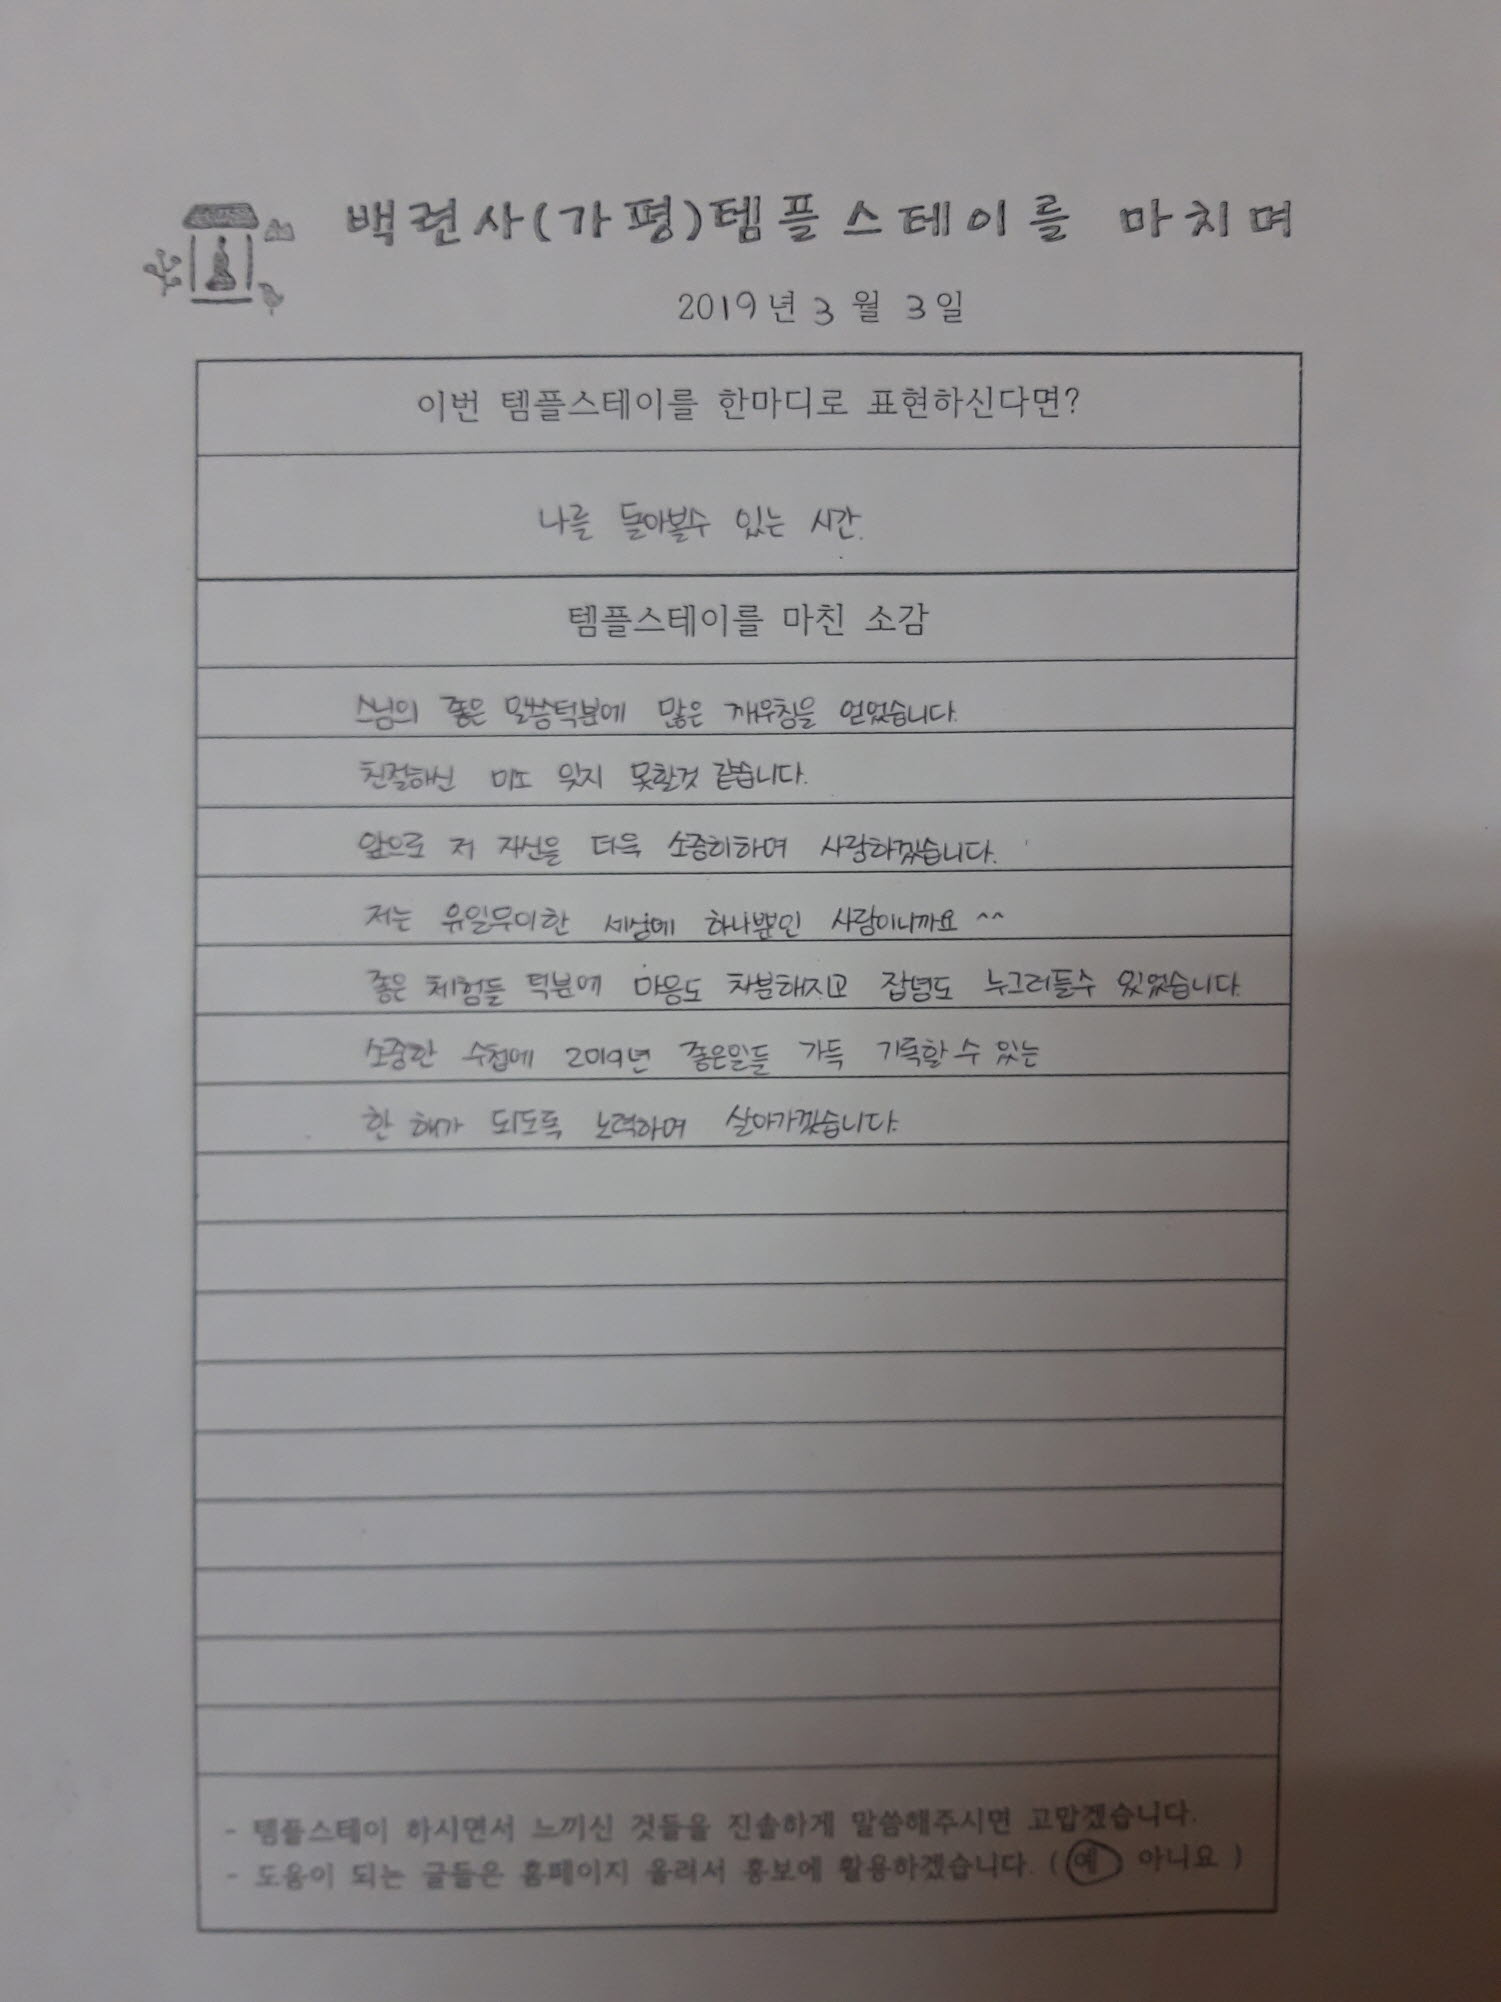 백련사(가평)템플스테이를 마치며
2019년 3월 3일
이번 템플스테이를 한마디로 표현하신다면?
나를 돌아볼수 있는 시간.
템플스테이를 마친 소감
스님의 좋은 말씀덕분에 많은 깨우침을 얻었습니다.
친절하신 미소 잊지 못할것 같습니다.
앞으로 저 자신을 더욱 소중히하며 사랑하겠습니다.
저는 유일무이한 세상에 하나뿐인 사람이니까요 ^^
좋은 체험들 덕분에 마음도 차분해지고 잡념도 누그러들수 있었습니다.
소중한 수첩에 2019년 좋은일들 가득 기록할 수 있는
한 해가 되도록 노력하며 살아가겠습니다.
- 템플스테이 하시면서 느끼신 것들을 진솔하게 말씀해주시면 고맙겠습니다.
- 도움이 되는 글들은 홈페이지 올려서 홍보에 활용하겠습니다. ( 예 아니요 )